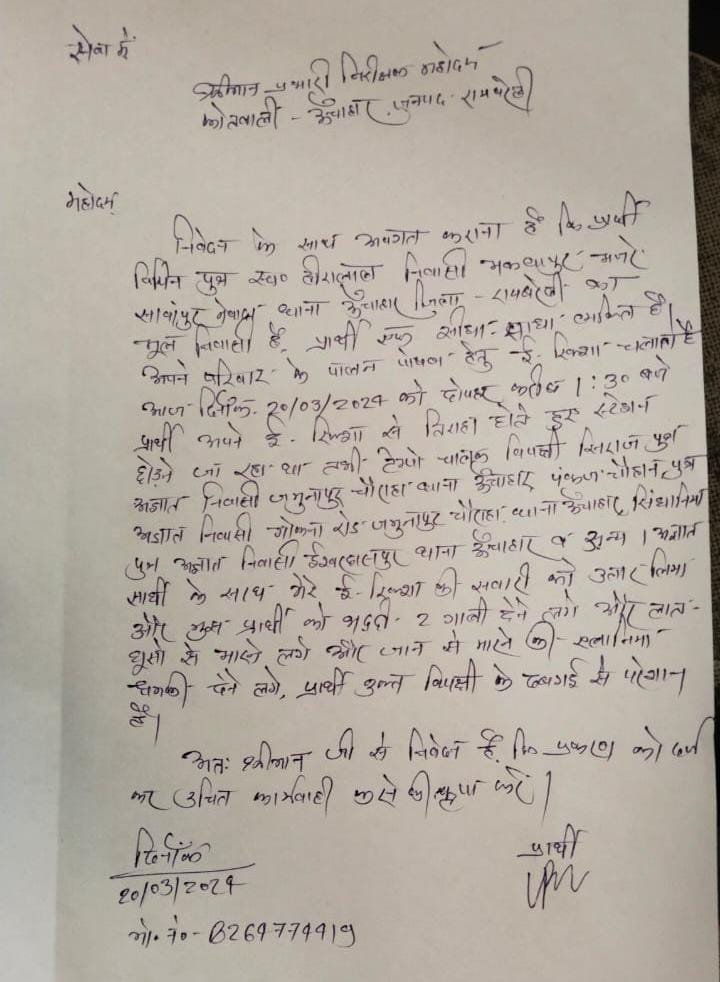 सेवा में
श्रीमान प्रभारी निरीक्षक महोदय
कोतवाली - ऊँचाहार, जनपद - रायबरेली
महोदय,
निवेदन के साथ अवगत कराना है कि प्रार्थी
विपिन पुत्र स्व० हीरालाल निवासी मजरे
सावांपुर नेवादा थाना ऊँचाहार जिला - रायबरेली का
मूल निवासी है, प्रार्थी एक सीधा-साधा व्यक्ति है।
अपने परिवार के पालन पोषण हेतु ई-रिक्शा चलाता है
आज दिनांक 20/03/2024 को दोपहर करीब 1:30 बजे
प्रार्थी अपने ई-रिक्शा से तिराहा होते हुए स्टेशन
छोड़ने जा रहा था तभी टेम्पो चालक विपक्षी पुत्र
अज्ञात निवासी जमुनापुर चौराहा थाना ऊँचाहार पंकज चौहान पुत्र
अज्ञात निवासी गोकना रोड जमुनापुर चौराहा थाना ऊँचाहार,
पुत्र अज्ञात निवासी ईश्वरदासपुर थाना ऊँचाहार व अन्य 1 अज्ञात
साथी के साथ मेरे ई-रिक्शा की सवारी को उतार लिया
और मुझ प्रार्थी को भद्दी-2 गाली देने लगे और लात-
घूसो से मारने लगे और जान से मारने की
धमकी देने लगे, प्रार्थी उक्त विपक्षी के दबंगई से परेशान
है।
अतः श्रीमान जी से निवेदन है कि प्रकरण को दर्ज
कर उचित कार्यवाही करने की कृपा करें।
दिनाँक
20/03/2024
प्रार्थी
मो. नं०- 8264774419